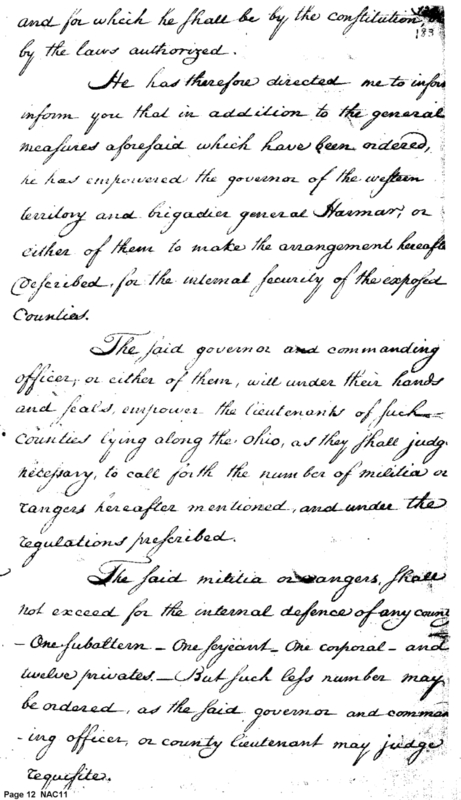 and for which he shall be by the constitution, or
183
by the laws authorized.
He has therefore directed me to infor
inform you that in addition to the general
measures aforesaid which have been ordered,
he has empowered the governor of the western
territory and brigadier general Harmar, or
either of them to make the arrangement hereafte
described, for the internal security of the exposed
Counties.
The said governor and commanding
officer, or either of them, will under their hands
and seals, empower the lieutenants of such
Counties lying along the Ohio, as they shall judge
necessary, to call forth the number of militia or
rangers hereafter mentioned, and under the
regulations prescribed.
The said militia or rangers, shall
not exceed for the internal defence of any county
- One subaltern - One serjeant - One corporal - and
twelve privates. - But such less number may
be ordered, as the said governor and comman
-ing officer, or county lieutenant may judge
requisite.
Page 12 NAC11